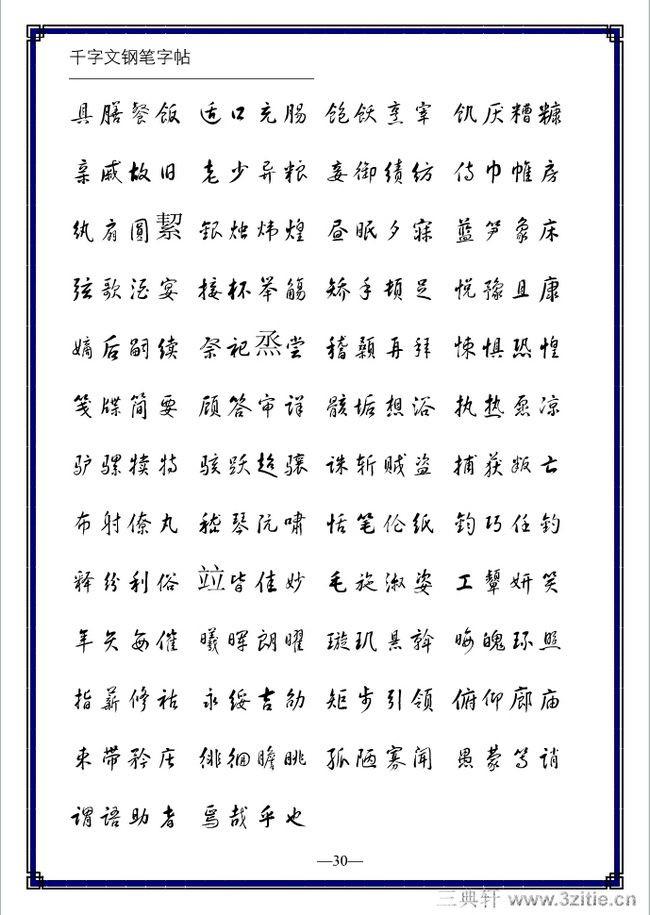 千字文钢笔字帖
具膳餐饭 适口充肠 饱饫烹宰 饥厌糟糠
亲戚故旧 老少异粮 妾御绩纺 侍巾帷房
纨扇圆絜 银烛炜煌 昼眠夕寐 蓝笋象床
弦歌酒宴 接杯举觞 矫手顿足 悦豫且康
嫡后嗣续 祭祀烝尝 稽颡再拜 悚惧恐惶
笺牒简要 顾答审详 骸垢想浴 执热愿凉
驴骡犊特 骇跃超骧 诛斩贼盗 捕获叛亡
布射僚丸 嵇琴阮啸 恬笔伦纸 钧巧任钓
释纷利俗 竝皆佳妙 毛施淑姿 工颦妍笑
年矢每催 曦晖朗曜 璇玑悬斡 晦魄环照
指薪修祜 永绥吉劭 矩步引领 俯仰廊庙
束带矜庄 徘徊瞻眺 孤陋寡闻 愚蒙等诮
谓语助者 焉哉乎也
—30—
三典轩 www.3zitie.cn